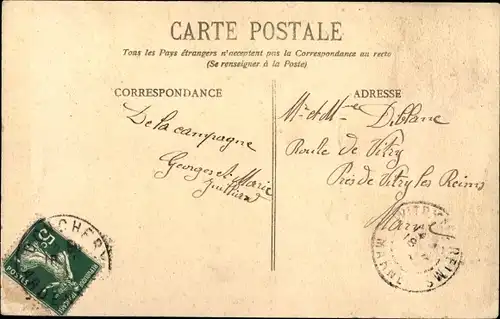 CARTE POSTALE
Tous les Pays étrangers n'acceptent pas la Correspondance au recto
(Se renseigner à la Poste)
CORRESPONDANCE
De la campagne
Georges et Marie
ADRESSE
Mr et Mme Diblane
Route de Vitry
Près de Vitry les Reims
Marne
REIMS
MARNE